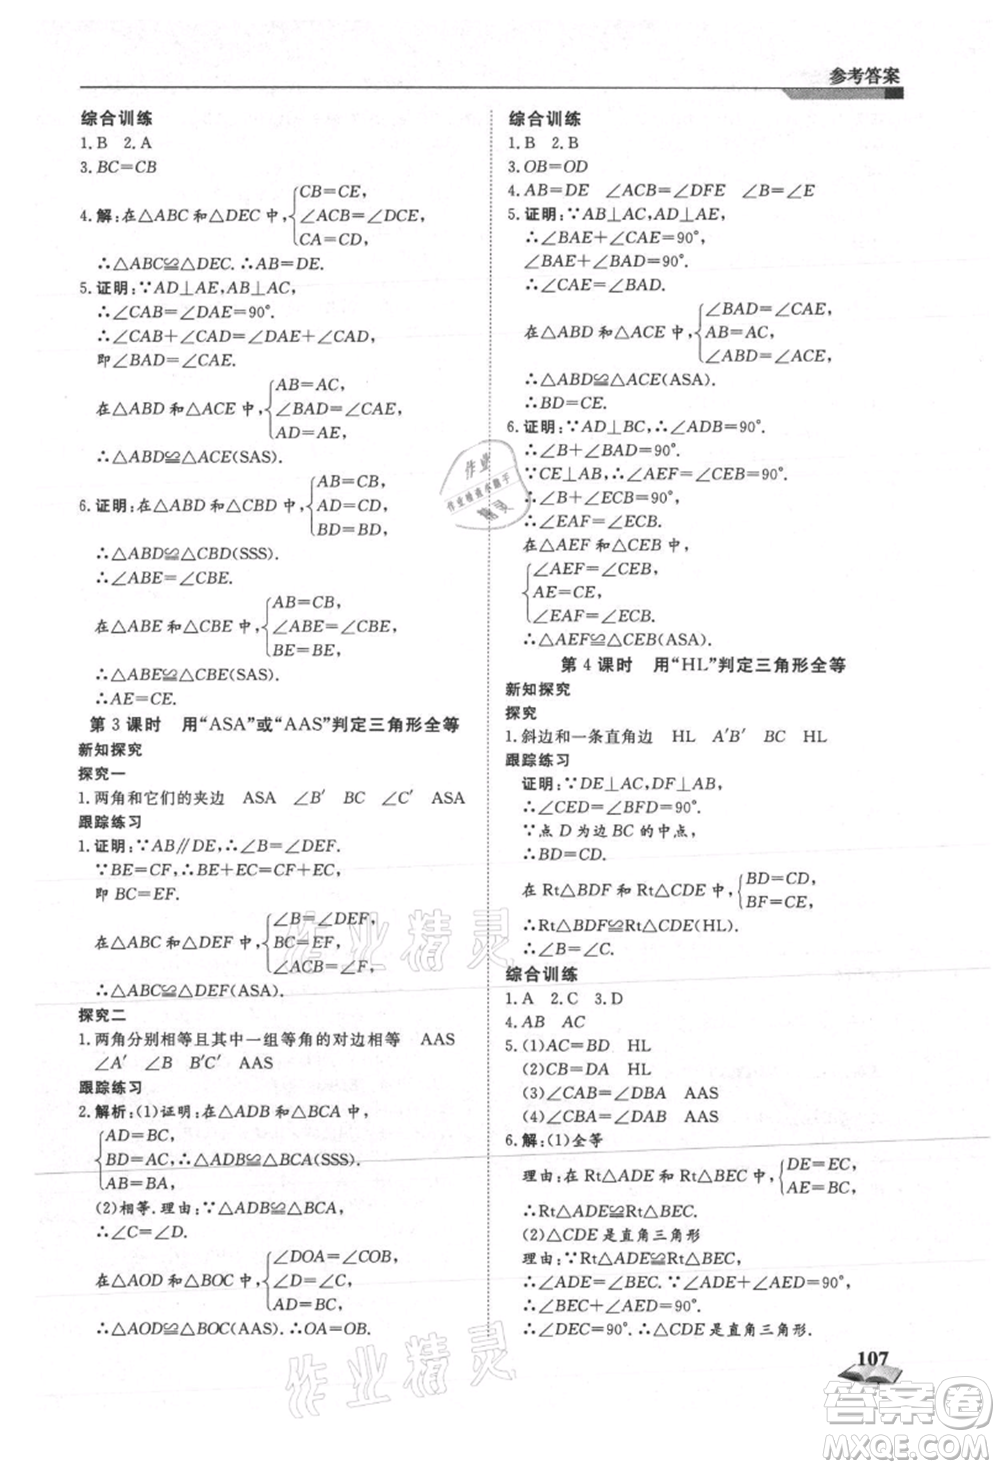 参考答案
综合训练
1.B 2.A
3.BC=CB
CB=CE,
4.解:在△ABC和△DEC中,∠ACB=∠DCE,
CA=CD,
∴△ABC≌△DEC.∴AB=DE.
5.证明:∵AD⊥AE,AB⊥AC,
∴∠CAB=∠DAE=90°.
∴∠CAB+∠CAD=∠DAE+∠CAD.
即∠BAD=∠CAE.
AB=AC,
在△ABD和△ACE中,∠BAD=∠CAE,
AD=AE,
∴△ABD≌△ACE(SAS).
AB=CB,
6.证明:在△ABD和△CBD中,AD=CD,
BD=BD,
∴△ABD≌△CBD(SSS).
∴∠ABE=∠CBE.
AB=CB,
在△ABE和△CBE中,∠ABE=∠CBE,
BE=BE,
∴△ABE≌△CBE(SAS).
∴AE=CE.
第3课时 用“ASA”或“AAS”判定三角形全等
新知探究
探究一
1.两角和它们的夹边 ASA ∠B′ BC ∠C′ ASA
跟踪练习
1.证明:∵AB∥DE,∴∠B=∠DEF.
∵BE=CF,∴BE+EC=CF+EC,
即BC=EF.
∠B=∠DEF,
在△ABC和△DEF中,BC=EF,
∠ACB=∠F,
∴△ABC≌△DEF(ASA).
探究二
1.两角分别相等且其中一组等角的对边相等 AAS
∠A′ ∠B B′C′ AAS
跟踪练习
2.解析:(1)证明:在△ADB和△BCA中,
AD=BC,
BD=AC,∴△ADB≌△BCA(SSS).
AB=BA,
(2)相等.理由:∵△ADB≌△BCA,
∴∠C=∠D.
∠DOA=∠COB,
在△AOD和△BOC中,∠D=∠C,
AD=BC,
∴△AOD≌△BOC(AAS).∴OA=OB.
综合训练
1.B 2.B
3.OB=OD
4.AB=DE ∠ACB=∠DFE ∠B=∠E
5.证明:∵AB⊥AC,AD⊥AE,
∴∠BAE+∠CAE=90°,
∠BAE+∠BAD=90°.
∴∠CAE=∠BAD.
∠BAD=∠CAE,
在△ABD和△ACE中,AB=AC,
∠ABD=∠ACE,
∴△ABD≌△ACE(ASA).
∴BD=CE.
6.证明:∵AD⊥BC,∴∠ADB=90°.
∴∠B+∠BAD=90°.
∵CE⊥AB,∴∠AEF=∠CEB=90°.
∴∠B+∠ECB=90°.
∴∠EAF=∠ECB.
在△AEF和△CEB中,
∠AEF=∠CEB,
AE=CE,
∠EAF=∠ECB,
∴△AEF≌△CEB(ASA).
第4课时 用“HL”判定三角形全等
新知探究
探究
1.斜边和一条直角边 HL A′B′ BC HL
跟踪练习
证明:∵DE⊥AC,DF⊥AB,
∴∠CED=∠BFD=90°.
∵点D为边BC的中点,
∴BD=CD.
在Rt△BDF和Rt△CDE中,BD=CD,
BF=CE,
∴Rt△BDF≌Rt△CDE(HL).
∴∠B=∠C.
综合训练
1.A 2.C 3.D
4.AB AC
5.(1)AC=BD HL
(2)CB=DA HL
(3)∠CAB=∠DBA AAS
(4)∠CBA=∠DAB AAS
6.解:(1)全等
理由:在Rt△ADE和Rt△BEC中,DE=EC,
AE=BC,
∴Rt△ADE≌Rt△BEC.
(2)△CDE是直角三角形
理由:∵Rt△ADE≌Rt△BEC,
∴∠ADE=∠BEC.∵∠ADE+∠AED=90°,
∴∠BEC+∠AED=90°.
∴∠DEC=90°.∴△CDE是直角三角形.
107
作业精灵
作业精灵
作业精灵
答案圈
MXQE.COM